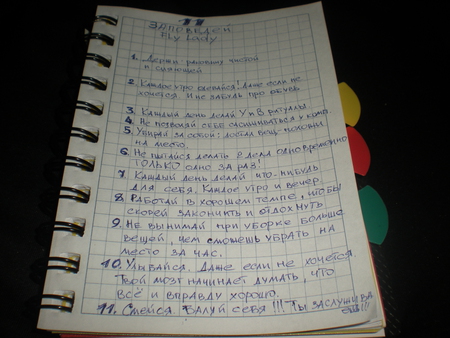 11
ЗАПОВЕДЕЙ
Fly Lady
1. Держи раковину чистой
и сияющей
2. Каждое утро одевайся! Даже если не
хочется. И не забудь про обувь
3. Каждый день делай У и В ритуалы
4. Не позволяй себе у комп.
5. Убирай за собой: достал вещ - положи
на место.
6. Не пытайся делать 2 дела одновременно
ТОЛЬКО одно за раз!
7. Каждый день делай что-нибудь
для себя. Каждое утро и вечер
8. Работай в хорошем темпе, чтобы
скорей закончить и отдохнуть
9. Не вынимай при уборке больше
вещей, чем сможешь убрать на
место за час.
10. Улыбайся. Даже если не хочется.
Твой мозг начинает думать, что
всё и вправду хорошо.
11. Смейся. Балуй себя!!! Ты заслужива
ешь!!!